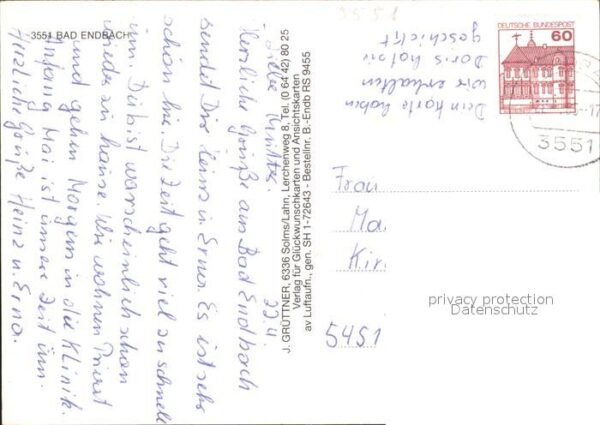 3551 BAD ENDBACH
3551
DEUTSCHE BUNDESPOST
60
3551
Dein Karte haben
wir erhalten
Doris hat sie
geschickt
22.4.
Liebe Mutter
Herzliche Grüße aus Bad Endbach
sendet Dir Heinz u. Erna. Es ist sehr
schön hier. Die Zeit geht viel zu schnell
um. Du bist warscheinlich schon
wieder zu hause. Wir wohnen Privat
und gehen Morgens in die Klinik.
Anfang Mai ist unsere Zeit um.
Herzliche Grüße Heinz u. Erna.
J. GRÜTTNER, 6336 Solms/Lahn, Lerchenweg 8, Tel. (0 64 42) 80 25
Verlag für Glückwunschkarten und Ansichtskarten
av Luftaufn., gen. SH 1-72643 - Bestellnr. B.-Endb RS 9455
Frau
Ma.
Kir.
5451
privacy protection
Datenschutz